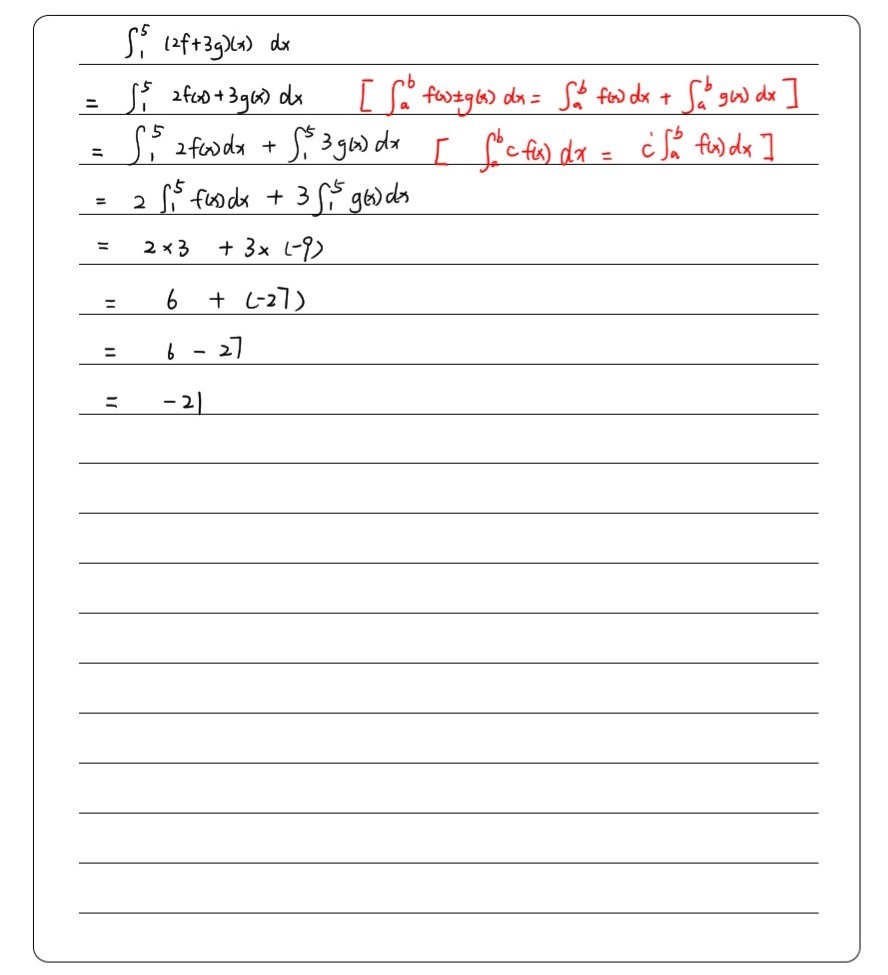 ∫₁⁵ (2f+3g)(x) dx
= ∫₁⁵ 2f(x)+3g(x) dx [ ∫ₐᵇ f(x)±g(x) dx = ∫ₐᵇ f(x) dx + ∫ₐᵇ g(x) dx ]
= ∫₁⁵ 2f(x)dx + ∫₁⁵ 3g(x) dx [ ∫ₐᵇ c f(x) dx = c ∫ₐᵇ f(x) dx ]
= 2 ∫₁⁵ f(x)dx + 3∫₁⁵ g(x)dx
= 2×3 + 3× (-9)
= 6 + (-27)
= 6 - 27
= -21